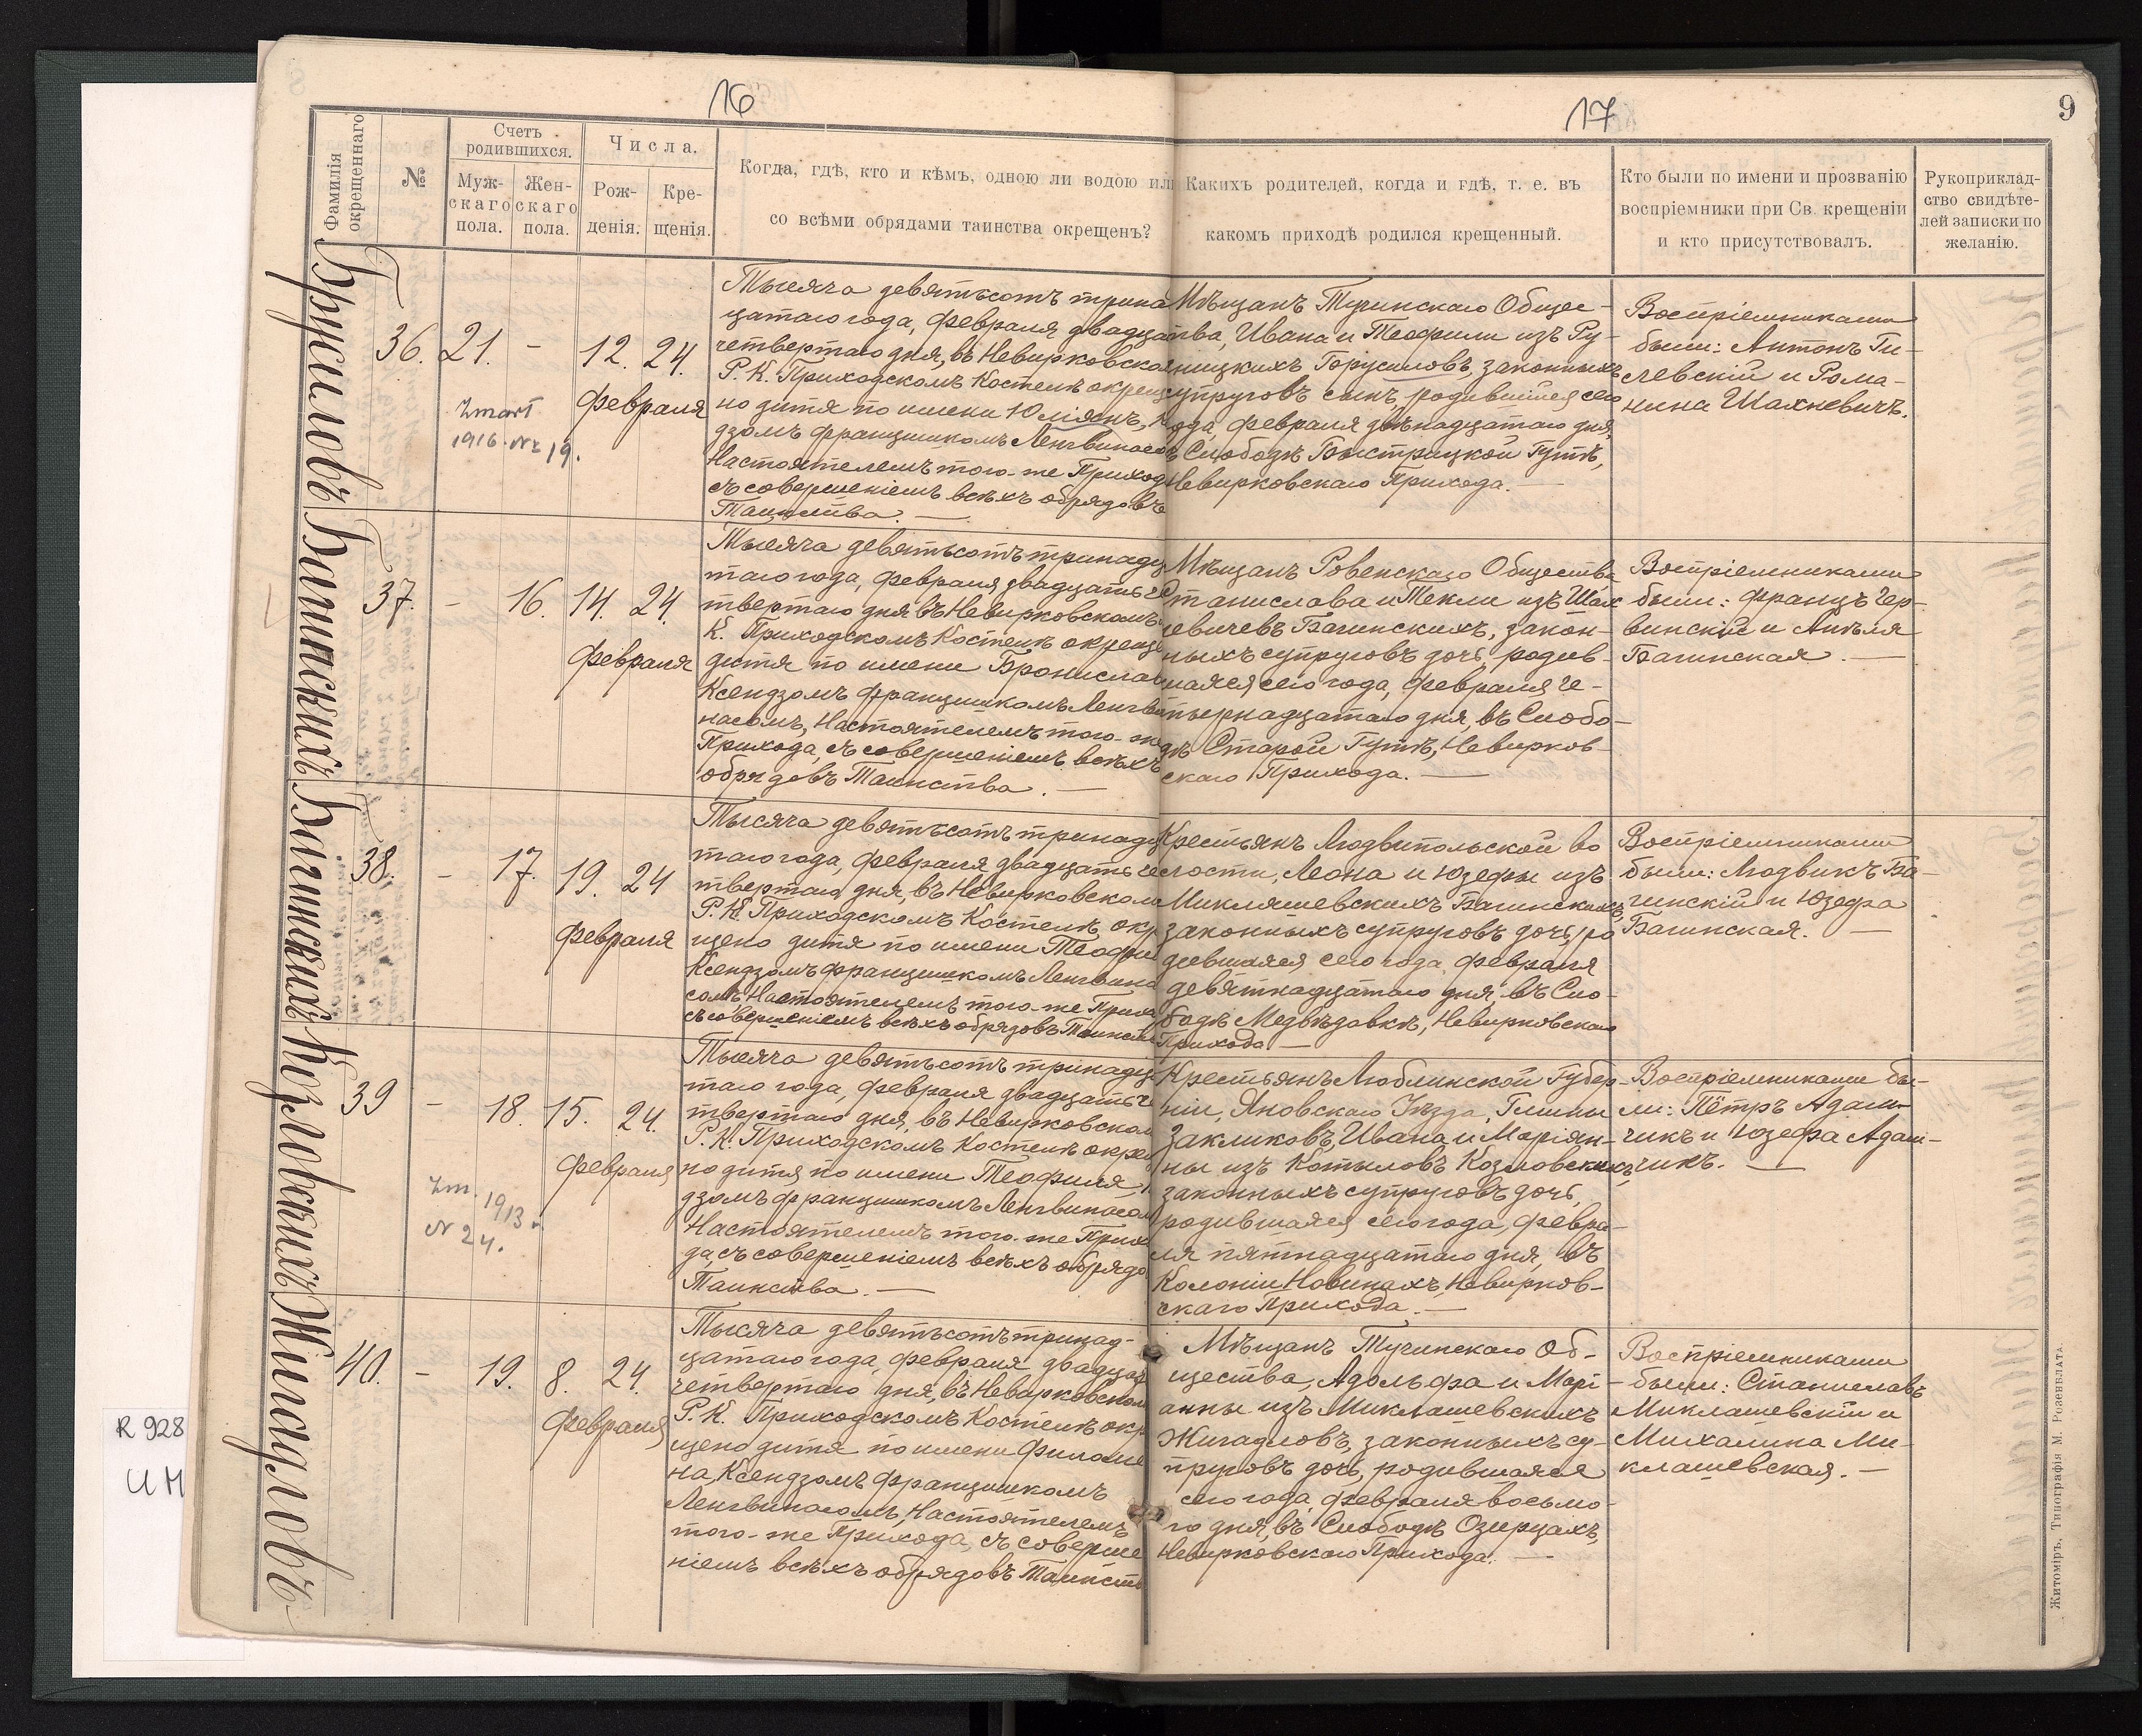 16
17
9
Фамилія окрещеннаго
№
Счетъ родившихся.
Мужскаго пола.
Женскаго пола.
Числа.
Рожденія.
Крещенія.
Когда, гдѣ, кто и кѣмъ, одною ли водою или
со всѣми обрядами таинства окрещенъ?
Какихъ родителей, когда и гдѣ, т. е. въ
какомъ приходѣ родился крещенный.
Кто были по имени и прозванію
воспріемники при Св. крещеніи
и кто присутствовалъ.
Рукоприклад-
ство свидѣте-
лей записки по
желанію.
Брусиловъ
36. 21. - 12. 24.
Февраля
Zmarł
1916. Nr 19.
Тысяча девятьсотъ трина
цатаго года, Февраля двадца
четвертаго дня, въ Невирковско
Р. К. Приходскомъ Костелѣ окрещ
но дитя по имени Юліянъ, К
дзомъ Францишкомъ Ленгвинасо
Настоятелемъ того-же Приход
съ совершеніемъ всѣхъ обрядовъ
Таинства. —
Мѣщанъ Тучинскаго Общес-
тва, Ивана и Теофили изъ Ру-
ницкихъ Брусиловъ, законныхъ
супруговъ сынъ, родившійся сего
года, Февраля двѣнадцатаго дня,
въ Слободѣ Быстрицкой Гутѣ,
Невирковскаго Прихода. —
Воспріемниками
были: Антонъ Ги-
левскій и Рома-
нина Шахневичъ.
Багинскихъ
37. - 16. 14. 24.
Февраля
Тысяча девятьсотъ тринадц
таго года, Февраля двадцать че
твертаго дня въ Невирковскомъ
К. Приходскомъ Костелѣ окреще
дитя по имени Бронислав
Ксендзомъ Францишкомъ Ленгви
насомъ, Настоятелемъ того-же
Прихода, съ совершеніемъ всѣхъ
обрядовъ Таинства. —
Мѣщанъ Ровенскаго Общества
Станислава и Текли изъ Шах
невичевъ Багинскихъ, закон-
ныхъ супруговъ дочь, родив-
шаяся сего года, Февраля че-
тырнадцатаго дня, въ Слобо-
дѣ Старой Гутѣ, Невирков-
скаго Прихода. —
Воспріемниками
были: Францъ Чер-
винскій и Анѣля
Багинская. —
Багинскихъ
38. - 17. 19. 24
Февраля
Тысяча девятьсотъ тринадц
таго года, Февраля двадцать че
твертаго дня, въ Невирковском
Р. К. Приходскомъ Костелѣ, окр
щено дитя по имени Теофи
Ксендзомъ Францишкомъ Ленгвина
сомъ Настоятелемъ того-же Прихо
съ совершеніемъ всѣхъ обрядовъ Таинств
Крестьянъ Людвипольской во
лости, Леона и Юзефы изъ
Микляшевскихъ Багинскихъ,
законныхъ супруговъ дочь, ро
дившаяся сего года, Февраля
девятнадцатаго дня, въ Сло-
бодѣ Медвѣдовкѣ, Невирковскаго
Прихода —
Воспріемниками
были: Людвикъ Ба-
гинскій и Юзефа
Багинская. —
Козловскихъ
39 - 18. 15. 24.
Февраля
Zm. 1913 r.
N 24.
Тысяча девятьсотъ тринадца
таго года, Февраля двадцать че
твертаго дня, въ Невирковском
Р. К. Приходскомъ Костелѣ окрещ
но дитя по имени Теофиля,
дзомъ Францишкомъ Ленгвинасом
Настоятелемъ того-же Прихо
да, съ совершеніемъ всѣхъ обрядо
Таинства. —
Крестьянъ Люблинской Губер-
ніи, Яновскаго Уѣзда, Гмины
Закликовъ, Ивана и Маріян-
ны изъ Котыловъ Козловскихъ,
законныхъ супруговъ дочь,
родившаяся сего года, Февра-
ля пятнадцатаго дня, въ
Колоніи Новинахъ, Невирков-
скаго Прихода. —
Воспріемниками бы-
ли: Пётръ Адам-
чикъ и Юзефа Адам-
чикъ. —
Жигадловъ
40. - 19. 8. 24.
Февраля
Тысяча девятьсотъ тринад-
цатаго года, Февраля двадцат
четвертаго дня, въ Невирковском
Р. К. Приходскомъ Костелѣ окр
щено дитя по имени Филоме
на, Ксендзомъ Францишкомъ
Ленгвинасомъ, Настоятелемъ
того-же Прихода, съ соверше
ніемъ всѣхъ обрядовъ Таинств
Мѣщанъ Тучинскаго Об-
щества, Адольфа и Марі-
анны изъ Миклашевскихъ
Жигадловъ, законныхъ су-
пруговъ дочь, родившаяся
сего года, Февраля восьмо-
го дня, въ Слободѣ Озирцахъ,
Невирковскаго Прихода. —
Воспріемниками
были: Станиславъ
Миклашевскій и
Михалина Ми-
клашевская. —
R 928
UM
Житоміръ, Типографія М. Розенблата.